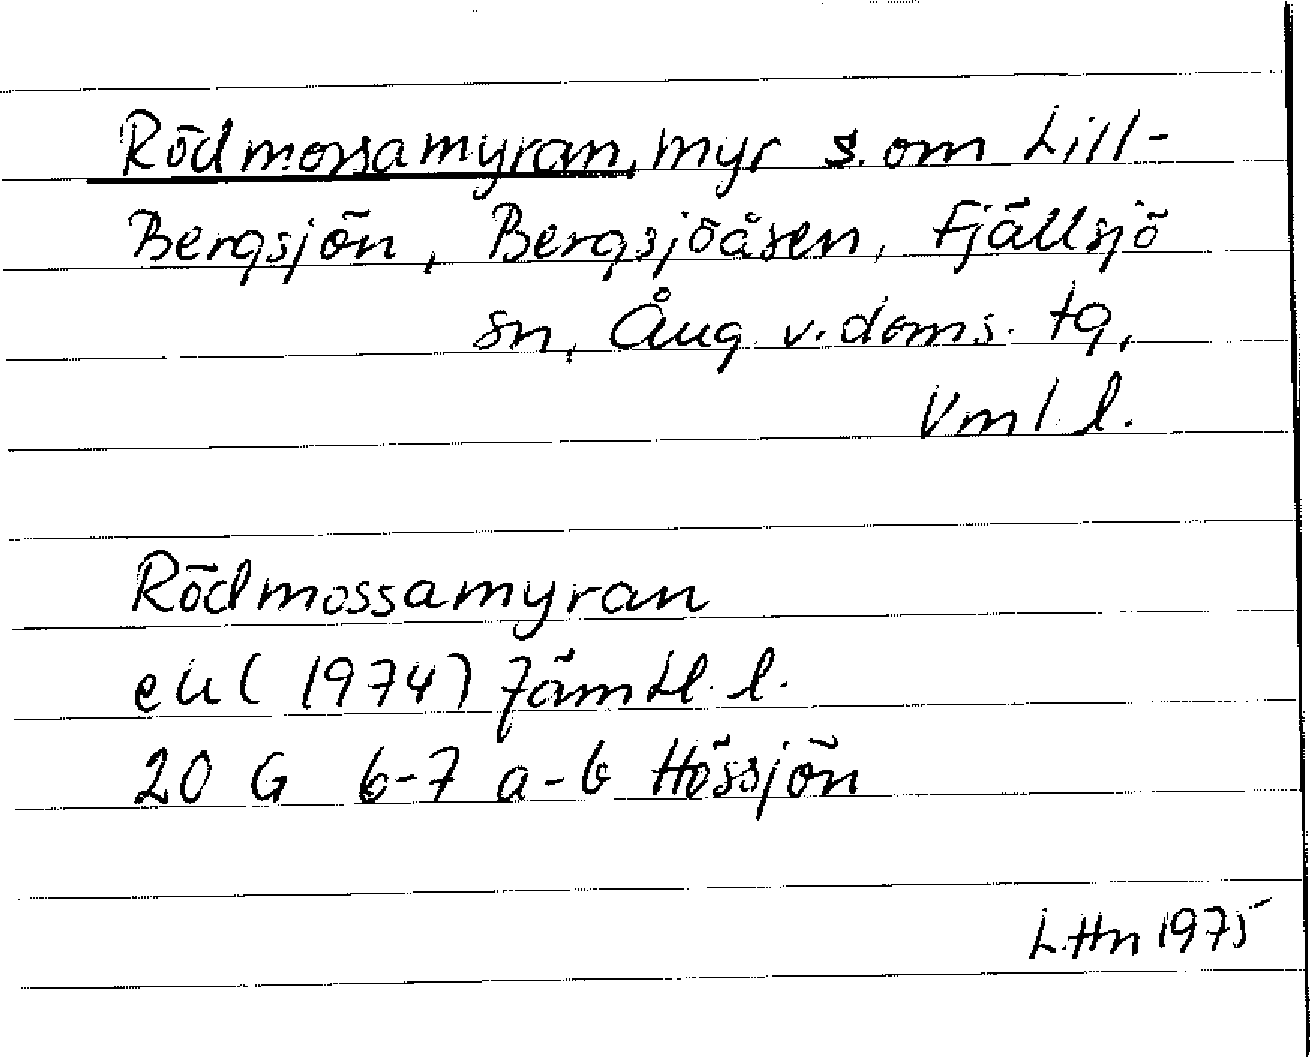 Rödmossamyran, myr s. om Lill-
Bergsjön, Bergsjöåsen, Fjällsjö
sn, Ång v. doms. tg,
Vnl l.
Rödmossamyran
ek (1974) Jämtl. l.
20 G 6-7 a-b Hössjön
LHn 1975